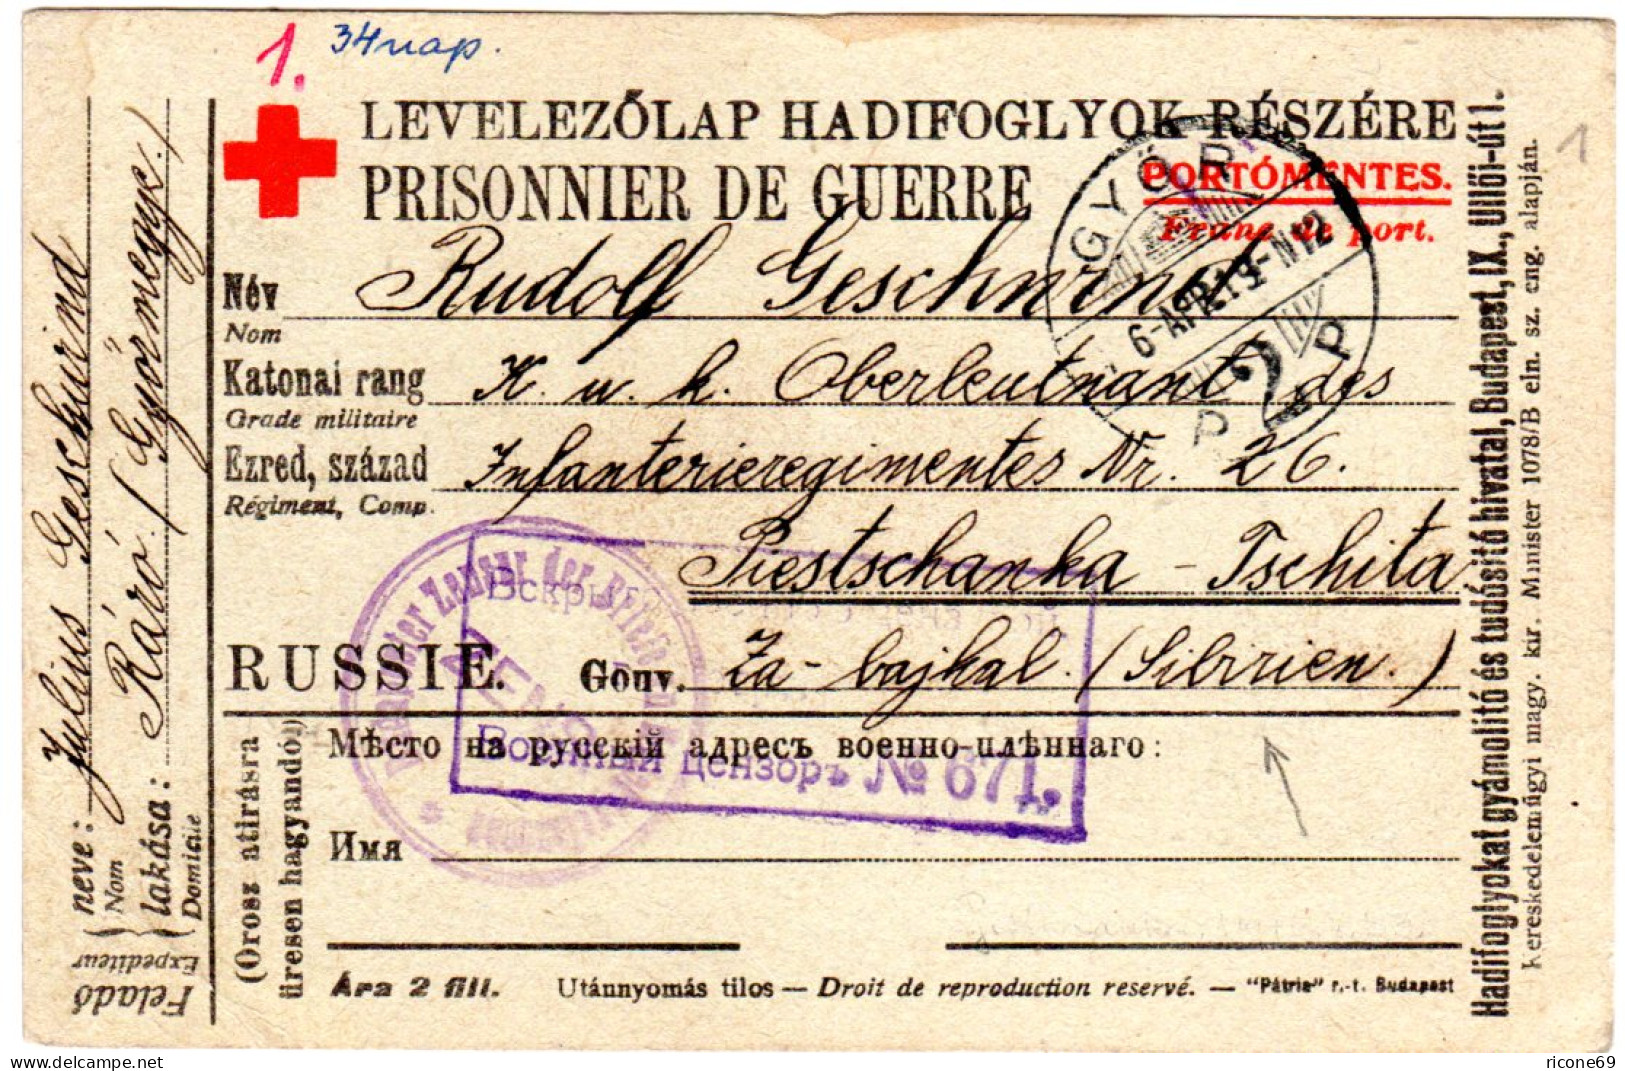 1. 34 nap.
LEVELEZŐLAP HADIFOGLYOK RÉSZÉRE
PRISONNIER DE GUERRE
PORTÓMENTES.
Franc de port.
GYŐR
6-APR
N12
P 2 P
1
Név Rudolf Geschwind
Nom
Katonai rang K. u. k. Oberleutnant des
Grade militaire
Ezred, század Infanterieregimentes Nr. 26.
Régiment, Comp.
Piestschanka - Tschita
RUSSIE. Gouv. Za-bajkal. (Sibirien.)
Вскрыто
Военный цензоръ № 671.
ZENSUR
Zensur der
Мѣсто на русскій адресъ военно-плѣннаго:
Имя
(Orosz atirásra
üresen hagyandó)
Ára 2 fill. Utánnyomás tilos — Droit de reproduction reservé. — "Pátria" r.-t. Budapest
Feladó
Expediteur
neve: Julius Geschwind
Nom
lakása: Ráró. (Győrmegye.)
Domicile
Hadifoglyokat gyámolitó és tudósitó hivatal, Budapest, IX., Üllői-út 1.
kereskedelemügyi magy. kir. Minister 1078/B eln. sz. eng. alapján.
ricone69